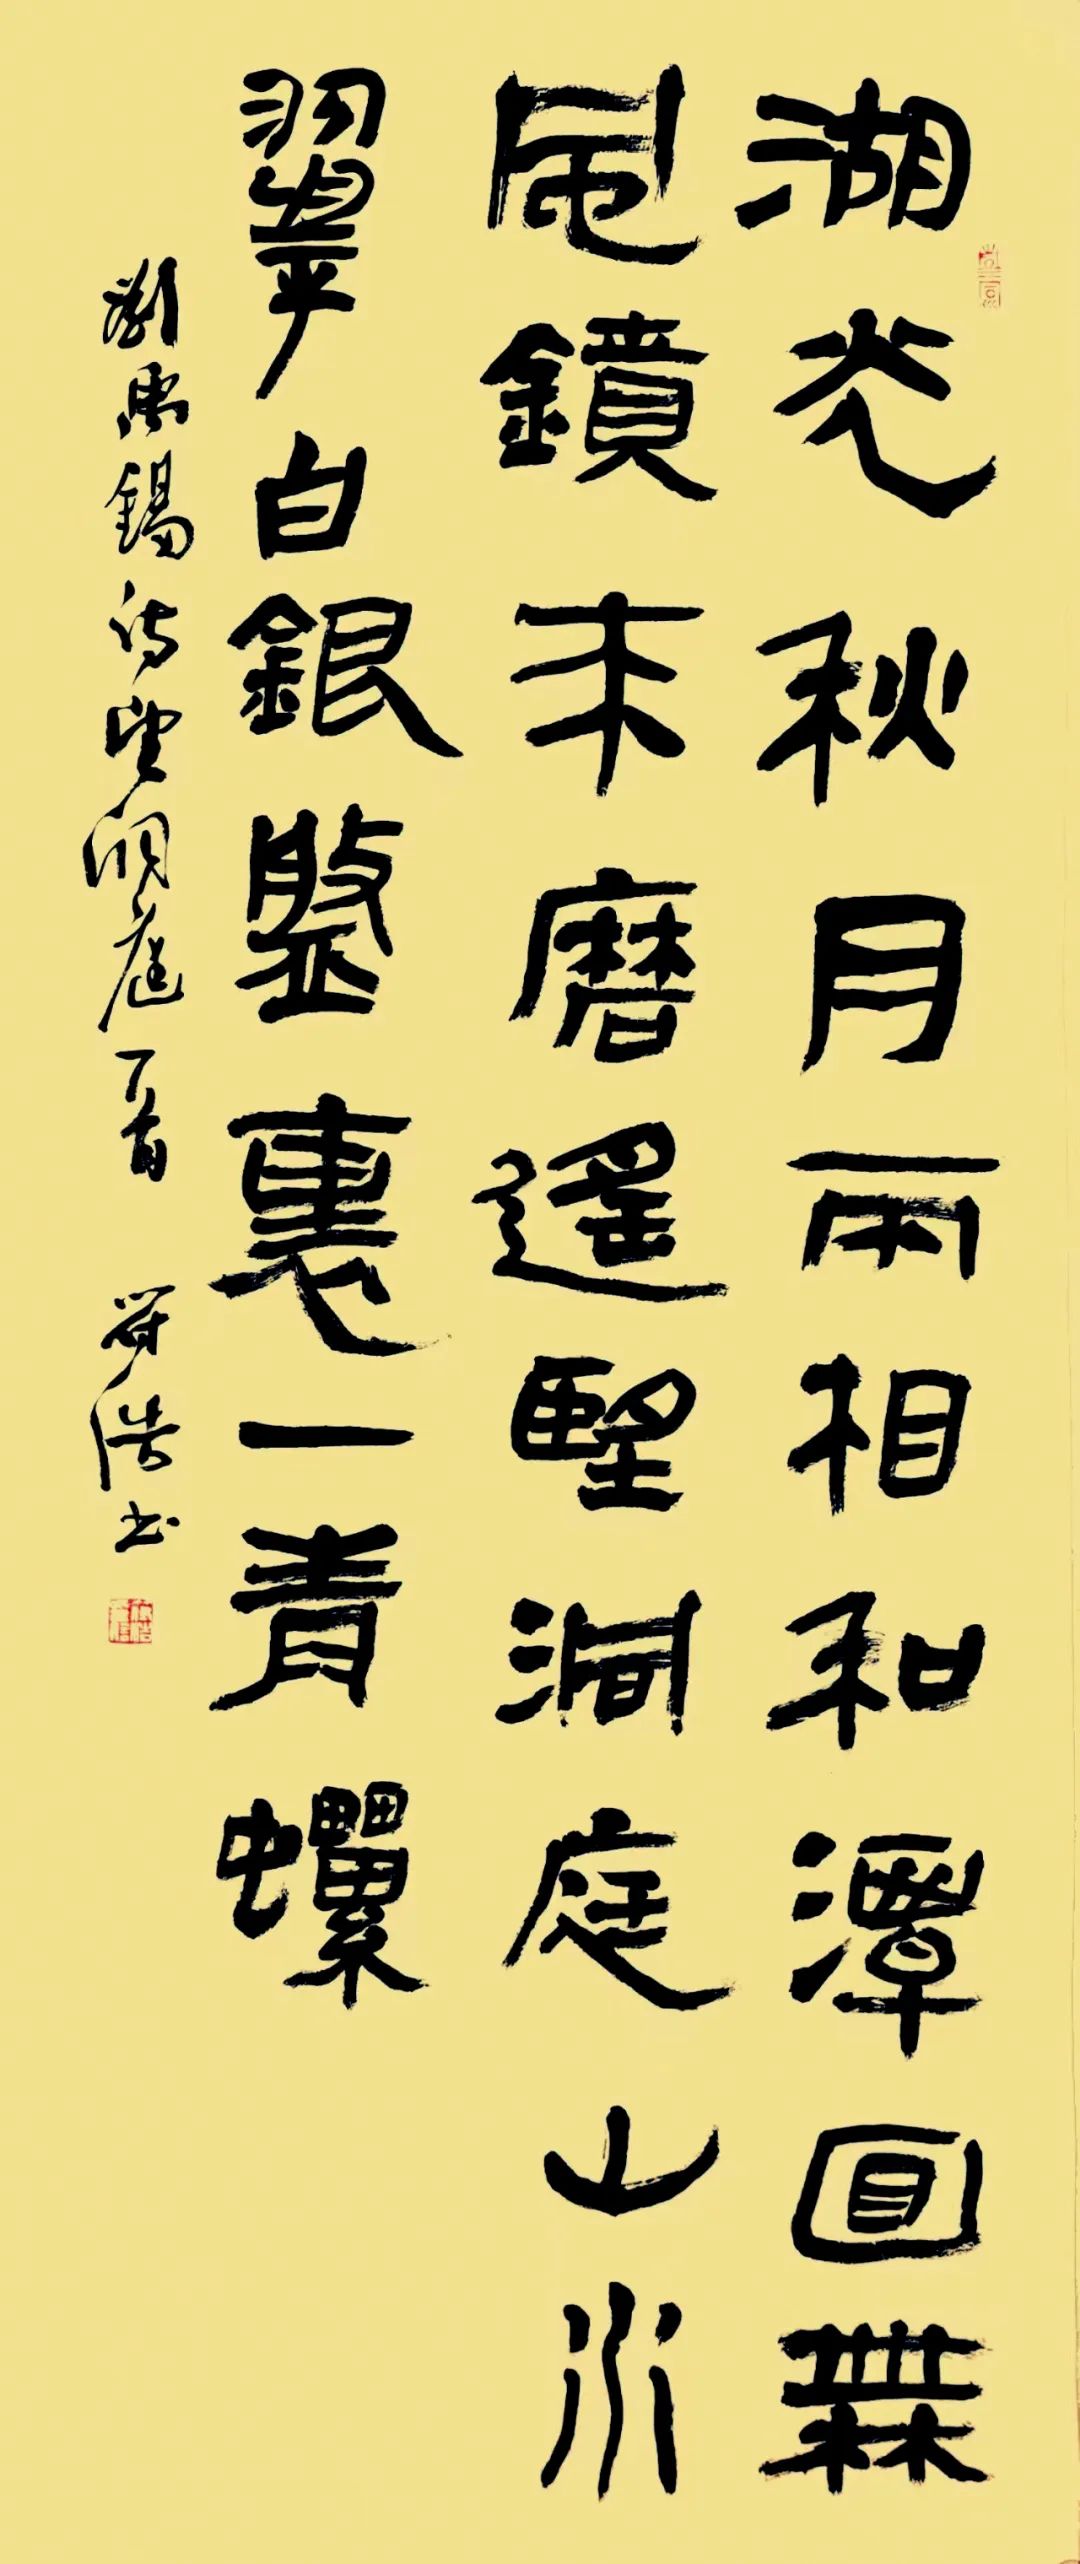 湖光秋月兩相和潭面無
風鏡未磨遙望洞庭山水
翠白銀盤裏一青螺
劉禹錫詩望洞庭一首 浩书